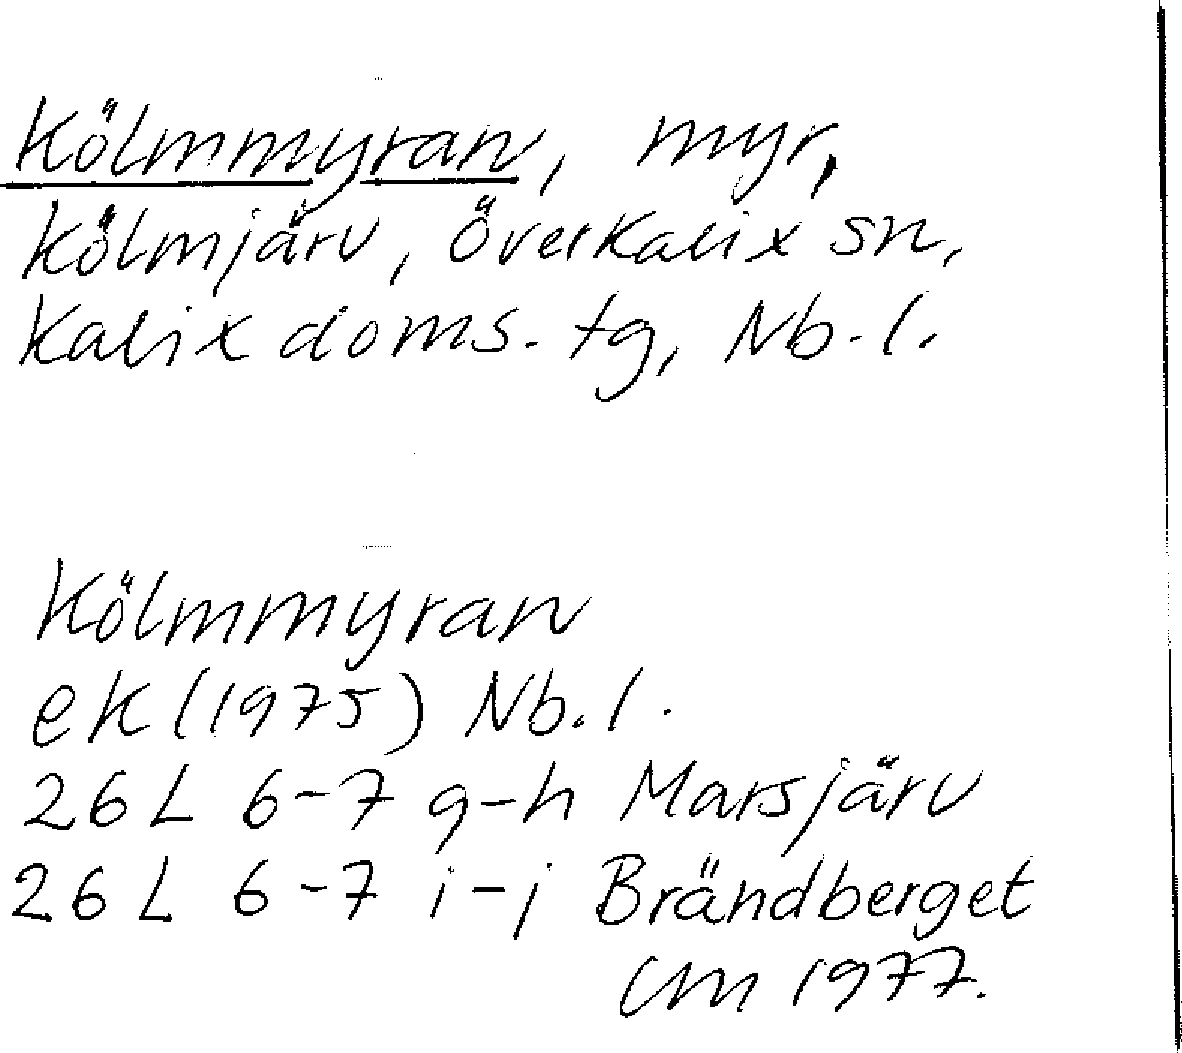 Kölmmyran, myr,
Kölmjärv, Överkalix sn,
Kalix doms. tg, Nb. l.
Kölmmyran
ek (1975) Nb. l.
26 L 6-7 g-h Marsjärv
26 L 6-7 i-j Brändberget
CM 1977.